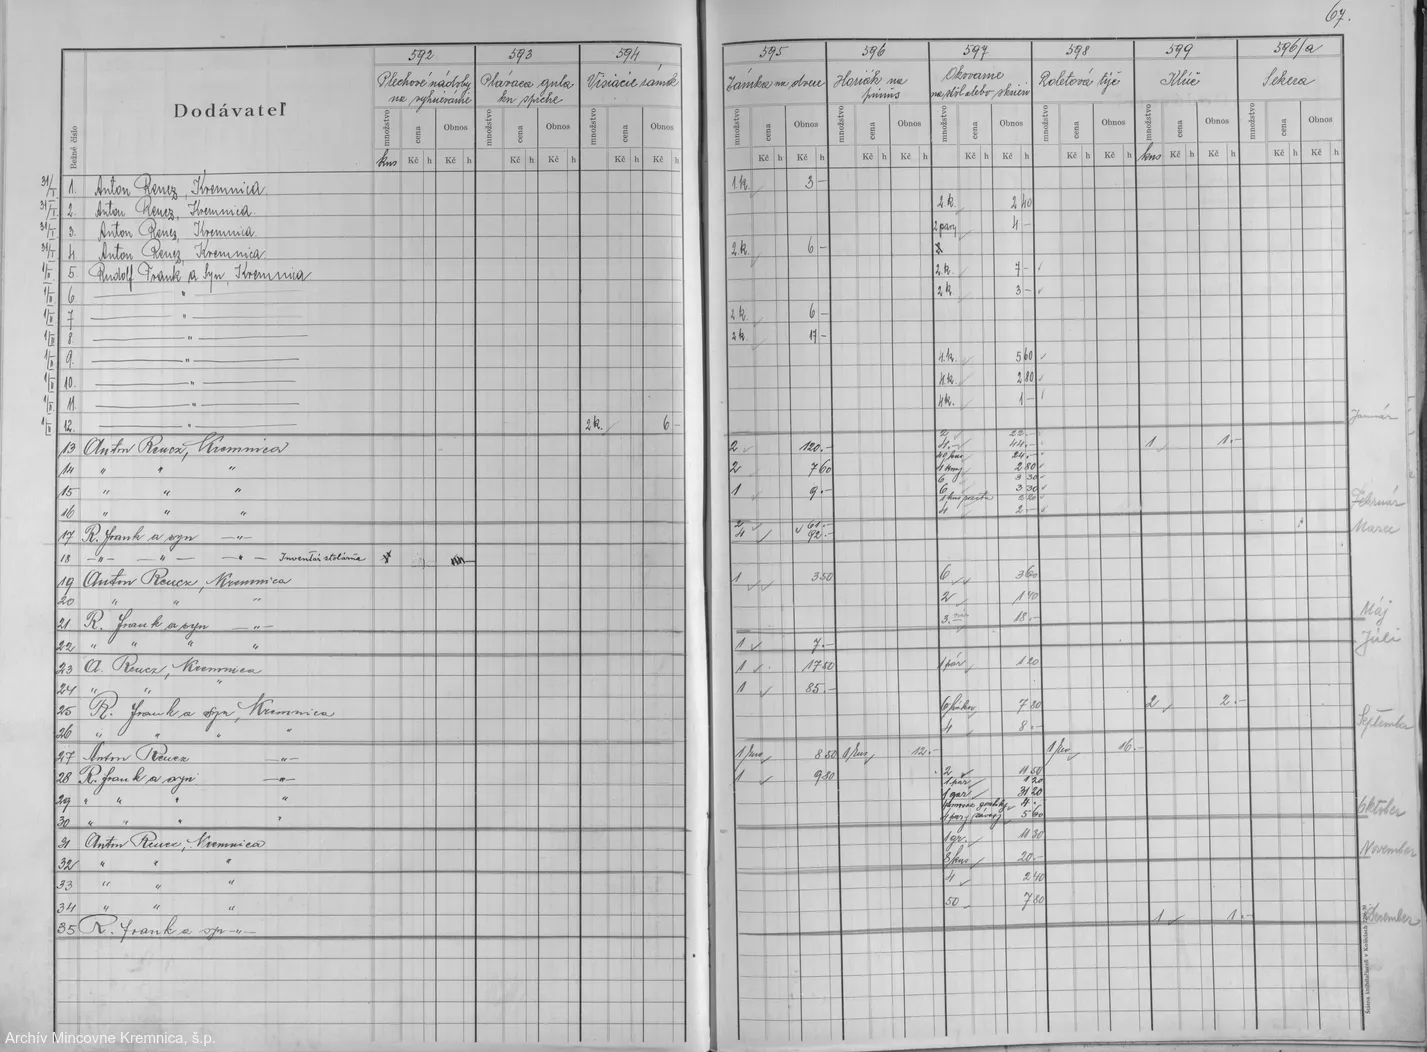 67.
592 593 594 595 596 597 598 599 596/a
Dodávateľ
Bežné číslo
Plechové nádoby na
Plávaca gula
Visiacie zámok
Zámka na dvere
Horák na
Okovanie na stôl alebo skriňu
Roletová tyč
Kľúč
Sekera
množstvo cena Obnos množstvo cena Obnos množstvo cena Obnos množstvo cena Obnos množstvo cena Obnos množstvo cena Obnos množstvo cena Obnos množstvo cena Obnos množstvo cena Obnos
kus Kč h Kč h Kč h Kč h Kč h Kč h Kč h Kč h Kč h Kč h Kč h Kč h Kč h Kč h kus Kč h Kč h Kč h Kč h
31/I 1. Anton Rencz, Kremnica 1 k. 3 –
31/I 2. Anton Rencz, Kremnica 2 k. 2 40
31/I 3. Anton Rencz, Kremnica 2 pary 4 –
31/I 4 Anton Rencz, Kremnica 2 k. 6 –
1/II 5. Rudolf Frank a Syn, Kremnica 2 k. 7 –
1/II 6 — " — 2 k 3 –
1/II 7 — " — 2 k. 6 –
1/II 8. — " — 2 k. 17 –
1/II 9. — " — 4 k. 5 60
1/II 10. — " — 4 k. 2 80
1/II 11. — " — 4 k. 1 –
1/II 12. — " — 2 k. 6 –
Január
13 Anton Rencz, Kremnica 2 120.– 4.– 44.– 1 1.–
14 " " " 2 7 60 2 80
15 " " " 1 9.– 6 3 30
16 " " " 4 2.–
Február
17 R. Frank a syn –"– 4 92.–
Marec
18 –"– –"– –"– Inventár stolárňa
19 Anton Rencz, Kremnica 1 3 50 6 3 60
20 " " " 2 1 40
21 R. Frank a syn –"– 3 18.–
Máj
22 " " " " 1 7.–
Júli
23 A. Rencz, Kremnica 1 17 50 1 pár 1 20
24 " " " 1 85.–
25 R. Frank a syn, Kremnica 7 80 2 2.–
26 " " " " 4 8.–
September
27 Anton Rencz –"– 1 kus 8 50 1 kus 12.– 1 kus 16.–
28 R. Frank a syn –"– 1 9 80 2 11 50
1 pár 1 20
29 " " " " 31 20
30 " " " " 5 60
Október
31 Anton Rencz, Kremnica 1 gr. 11 30
32 " " " 8 kus 20.–
November
33 " " " 4 2 40
34 " " " 50 7 80
35 R. Frank a syn –"– 1 1.–
December
Archív Mincovne Kremnica, š.p.